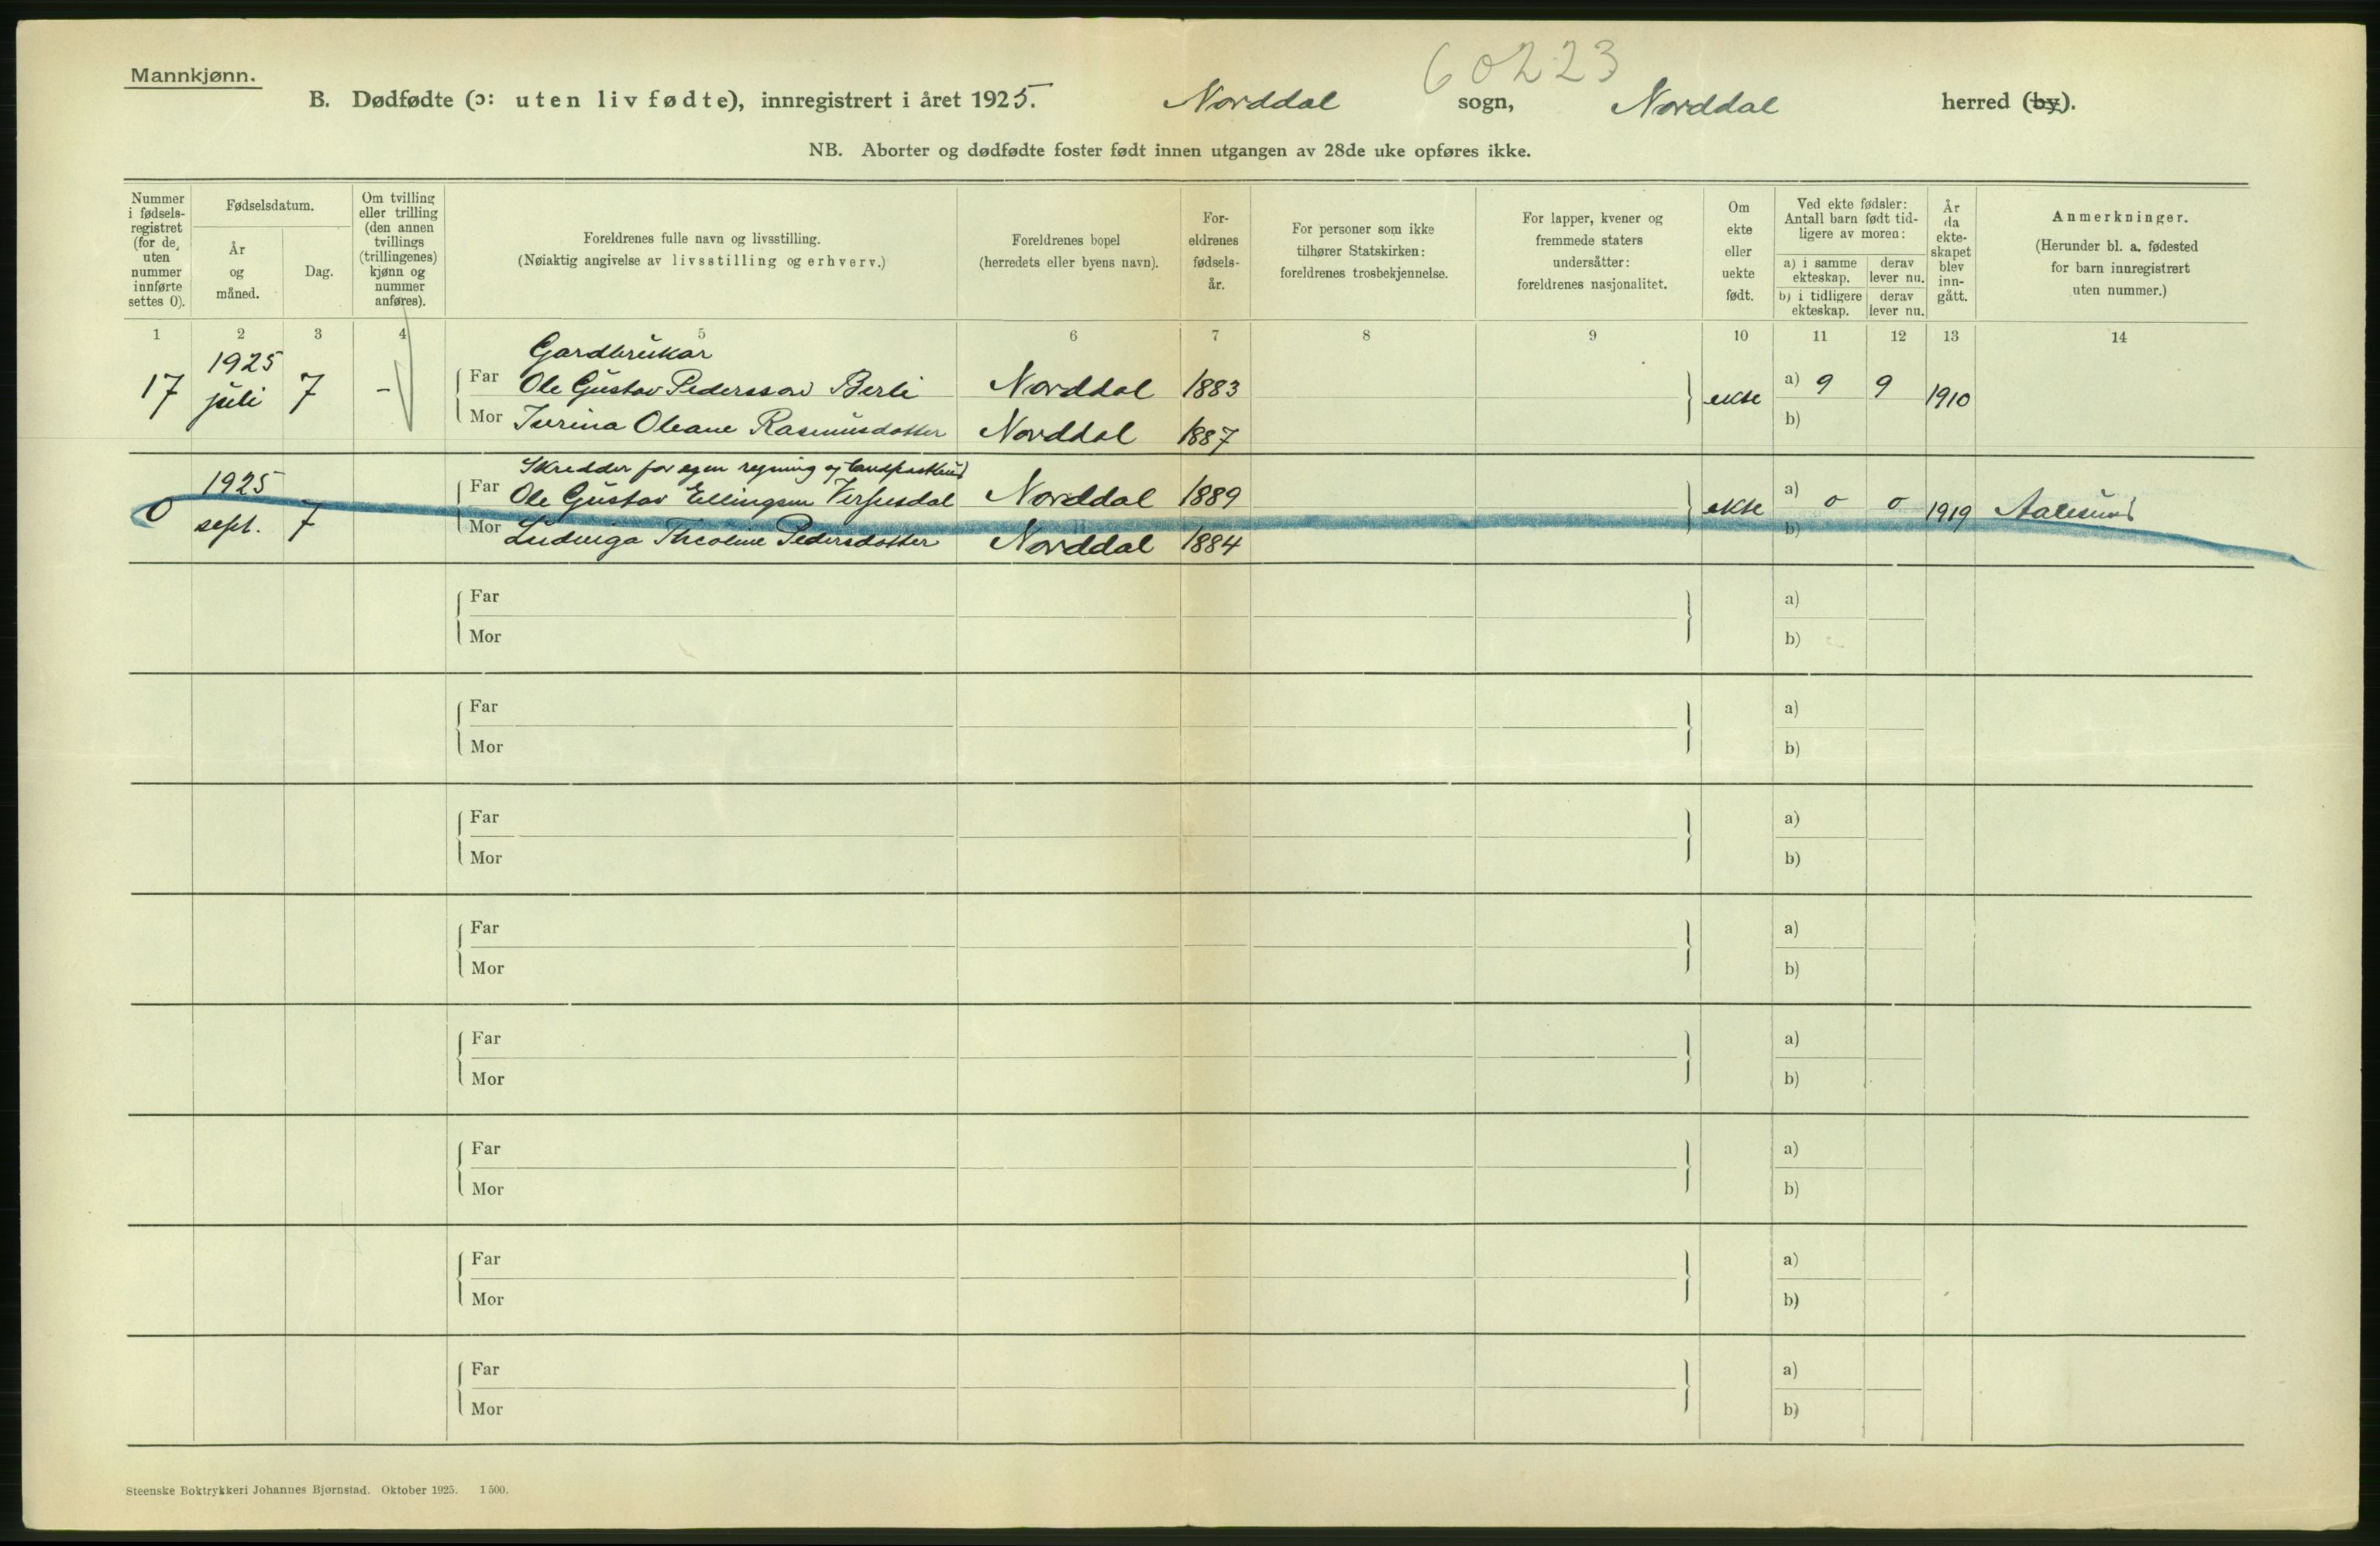 Mannkjønn.
60223
B. Dødfødte (ɔ: uten liv fødte), innregistrert i året 1925. Norddal sogn, Norddal herred (by).
NB. Aborter og dødfødte foster født innen utgangen av 28de uke opføres ikke.
Nummer i fødsels-registret (for de uten nummer innførte settes 0).
Fødselsdatum.
År og måned.
Dag.
Om tvilling eller trilling (den annen tvillings (trillingenes) kjønn og nummer anføres).
Foreldrenes fulle navn og livsstilling.
(Nøiaktig angivelse av livsstilling og erhverv.)
Foreldrenes bopel
(herredets eller byens navn).
For-eldrenes fødsels-år.
For personer som ikke tilhører Statskirken: foreldrenes trosbekjennelse.
For lapper, kvener og fremmede staters undersåtter: foreldrenes nasjonalitet.
Om ekte eller uekte født.
Ved ekte fødsler: Antall barn født tid-ligere av moren:
a) i samme ekteskap. derav lever nu.
b) i tidligere ekteskap. derav lever nu.
År da ekte-skapet blev inn-gått.
Anmerkninger.
(Herunder bl. a. fødested for barn innregistrert uten nummer.)
1 2 3 4 5 6 7 8 9 10 11 12 13 14
1925 Gardbrukar
17 juli 7 - Far Ole Gustav Pedersson Berli Norddal 1883 ekte a) 9 9 1910
Mor Oleane Rasmusdotter Norddal 1887 b)
1925 Skredder for egen regning og landpostbud
0 sept. 7 Far Ole Gustav Ellingsen Norddal 1889 ekte a) 0 0 1919 Aalesund
Mor Ludviga Pedersdotter Norddal 1884 b)
Far a)
Mor b)
Far a)
Mor b)
Far a)
Mor b)
Far a)
Mor b)
Far a)
Mor b)
Far a)
Mor b)
Far a)
Mor b)
Far a)
Mor b)
Steenske Boktrykkeri Johannes Bjørnstad. Oktober 1925. 1500.